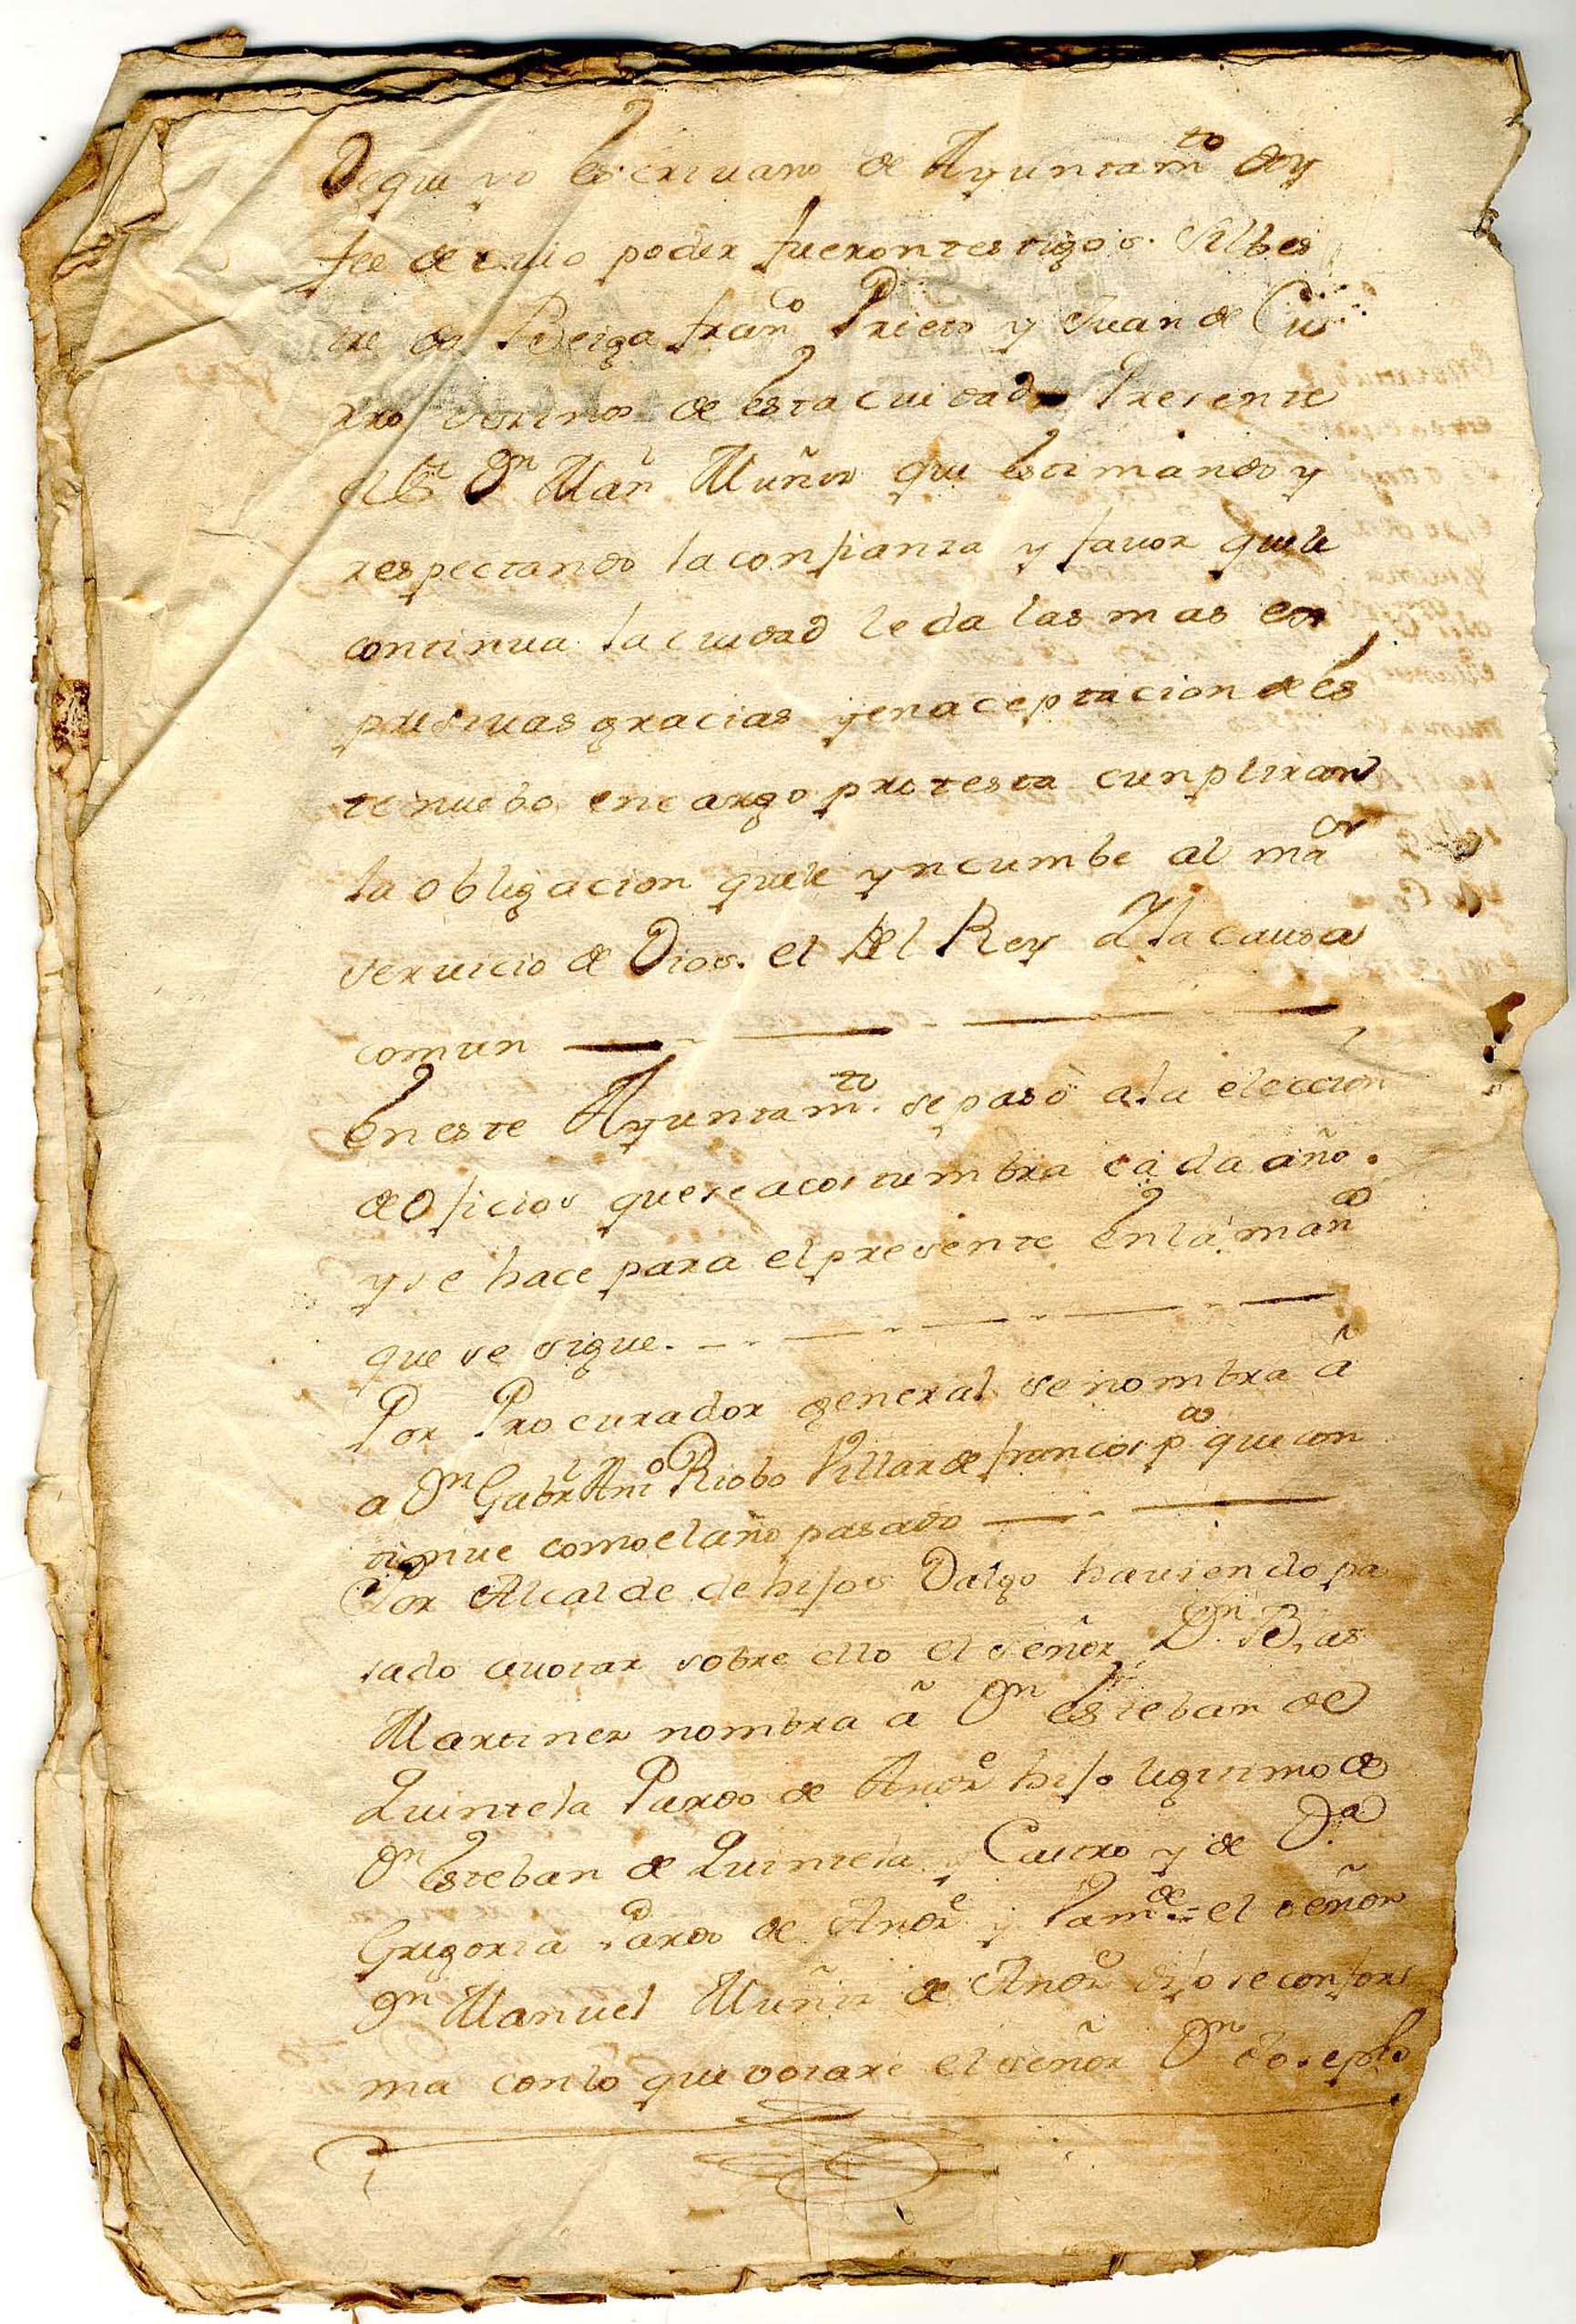 De que yo Escrivano de Ayuntamto doy
fee de cuio poder fueron testigos. Silbes
tre da Beiga franco Prieto y Juan de Cu
rro vecinos de esta cuidad Presente
el Sr Dn Man Muñiz que estimando y
respectando la confianza y favor que le
continua la ciudad le da las mas ex
presivas gracias y en aceptacion de és
te nuebo encargo protesta cunplir con
la obligacion que le yncumbe al maor
servicio de Dios. el del Rey a la causa
comun
En este Ayuntamto. se pasò a la eleccion
de Oficios que se acostumbra cada año.
y se hace para el presente En la mana
que se sigue.
Por Procurador general se nombra â
a Dn Gabrl Anto Riobo Villardefrancos pa que con
tinue como el año pasado
Por Alcalde de hijos Dalgo haviendo pa
sado a votar sobre ello el señor Dn. Blas
Martinez nombra â Dn Esteban de
Quintela Pardo de Ande hijo legitimo de
Dn Esteban de Quintela y Castro y de Da
Gregoria Pardo de Ande y el señor
Dn Manuel Muñiz de Ande dijo se confor
ma con lo que votare el señor Dn Joseph